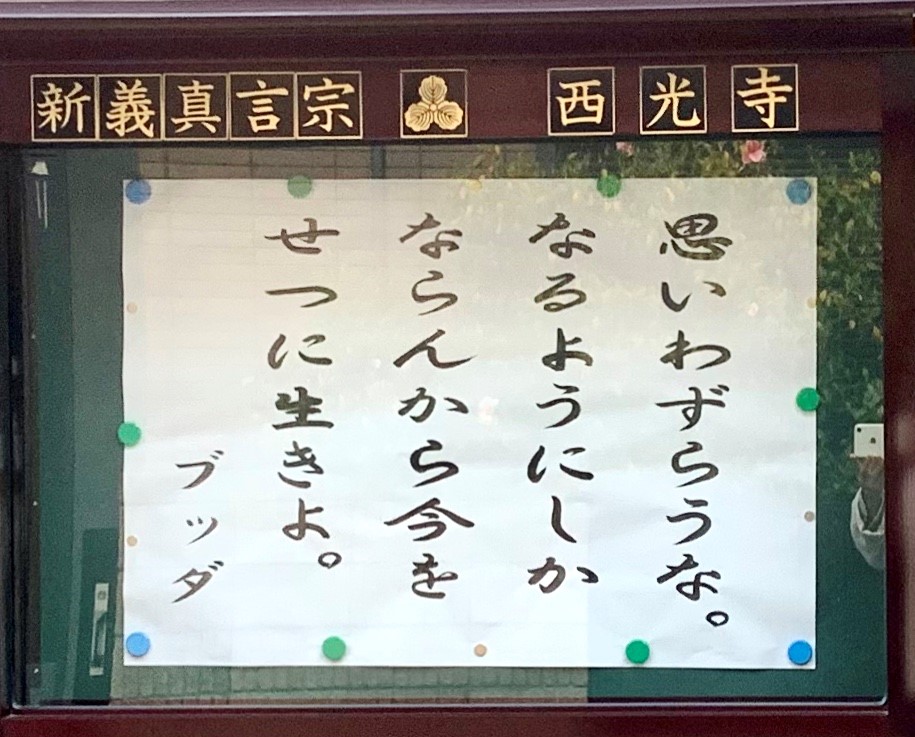 新義真言宗 西光寺
思いわずらうな。
なるようにしか
ならんから今を
せつに生きよ。
ブッダ